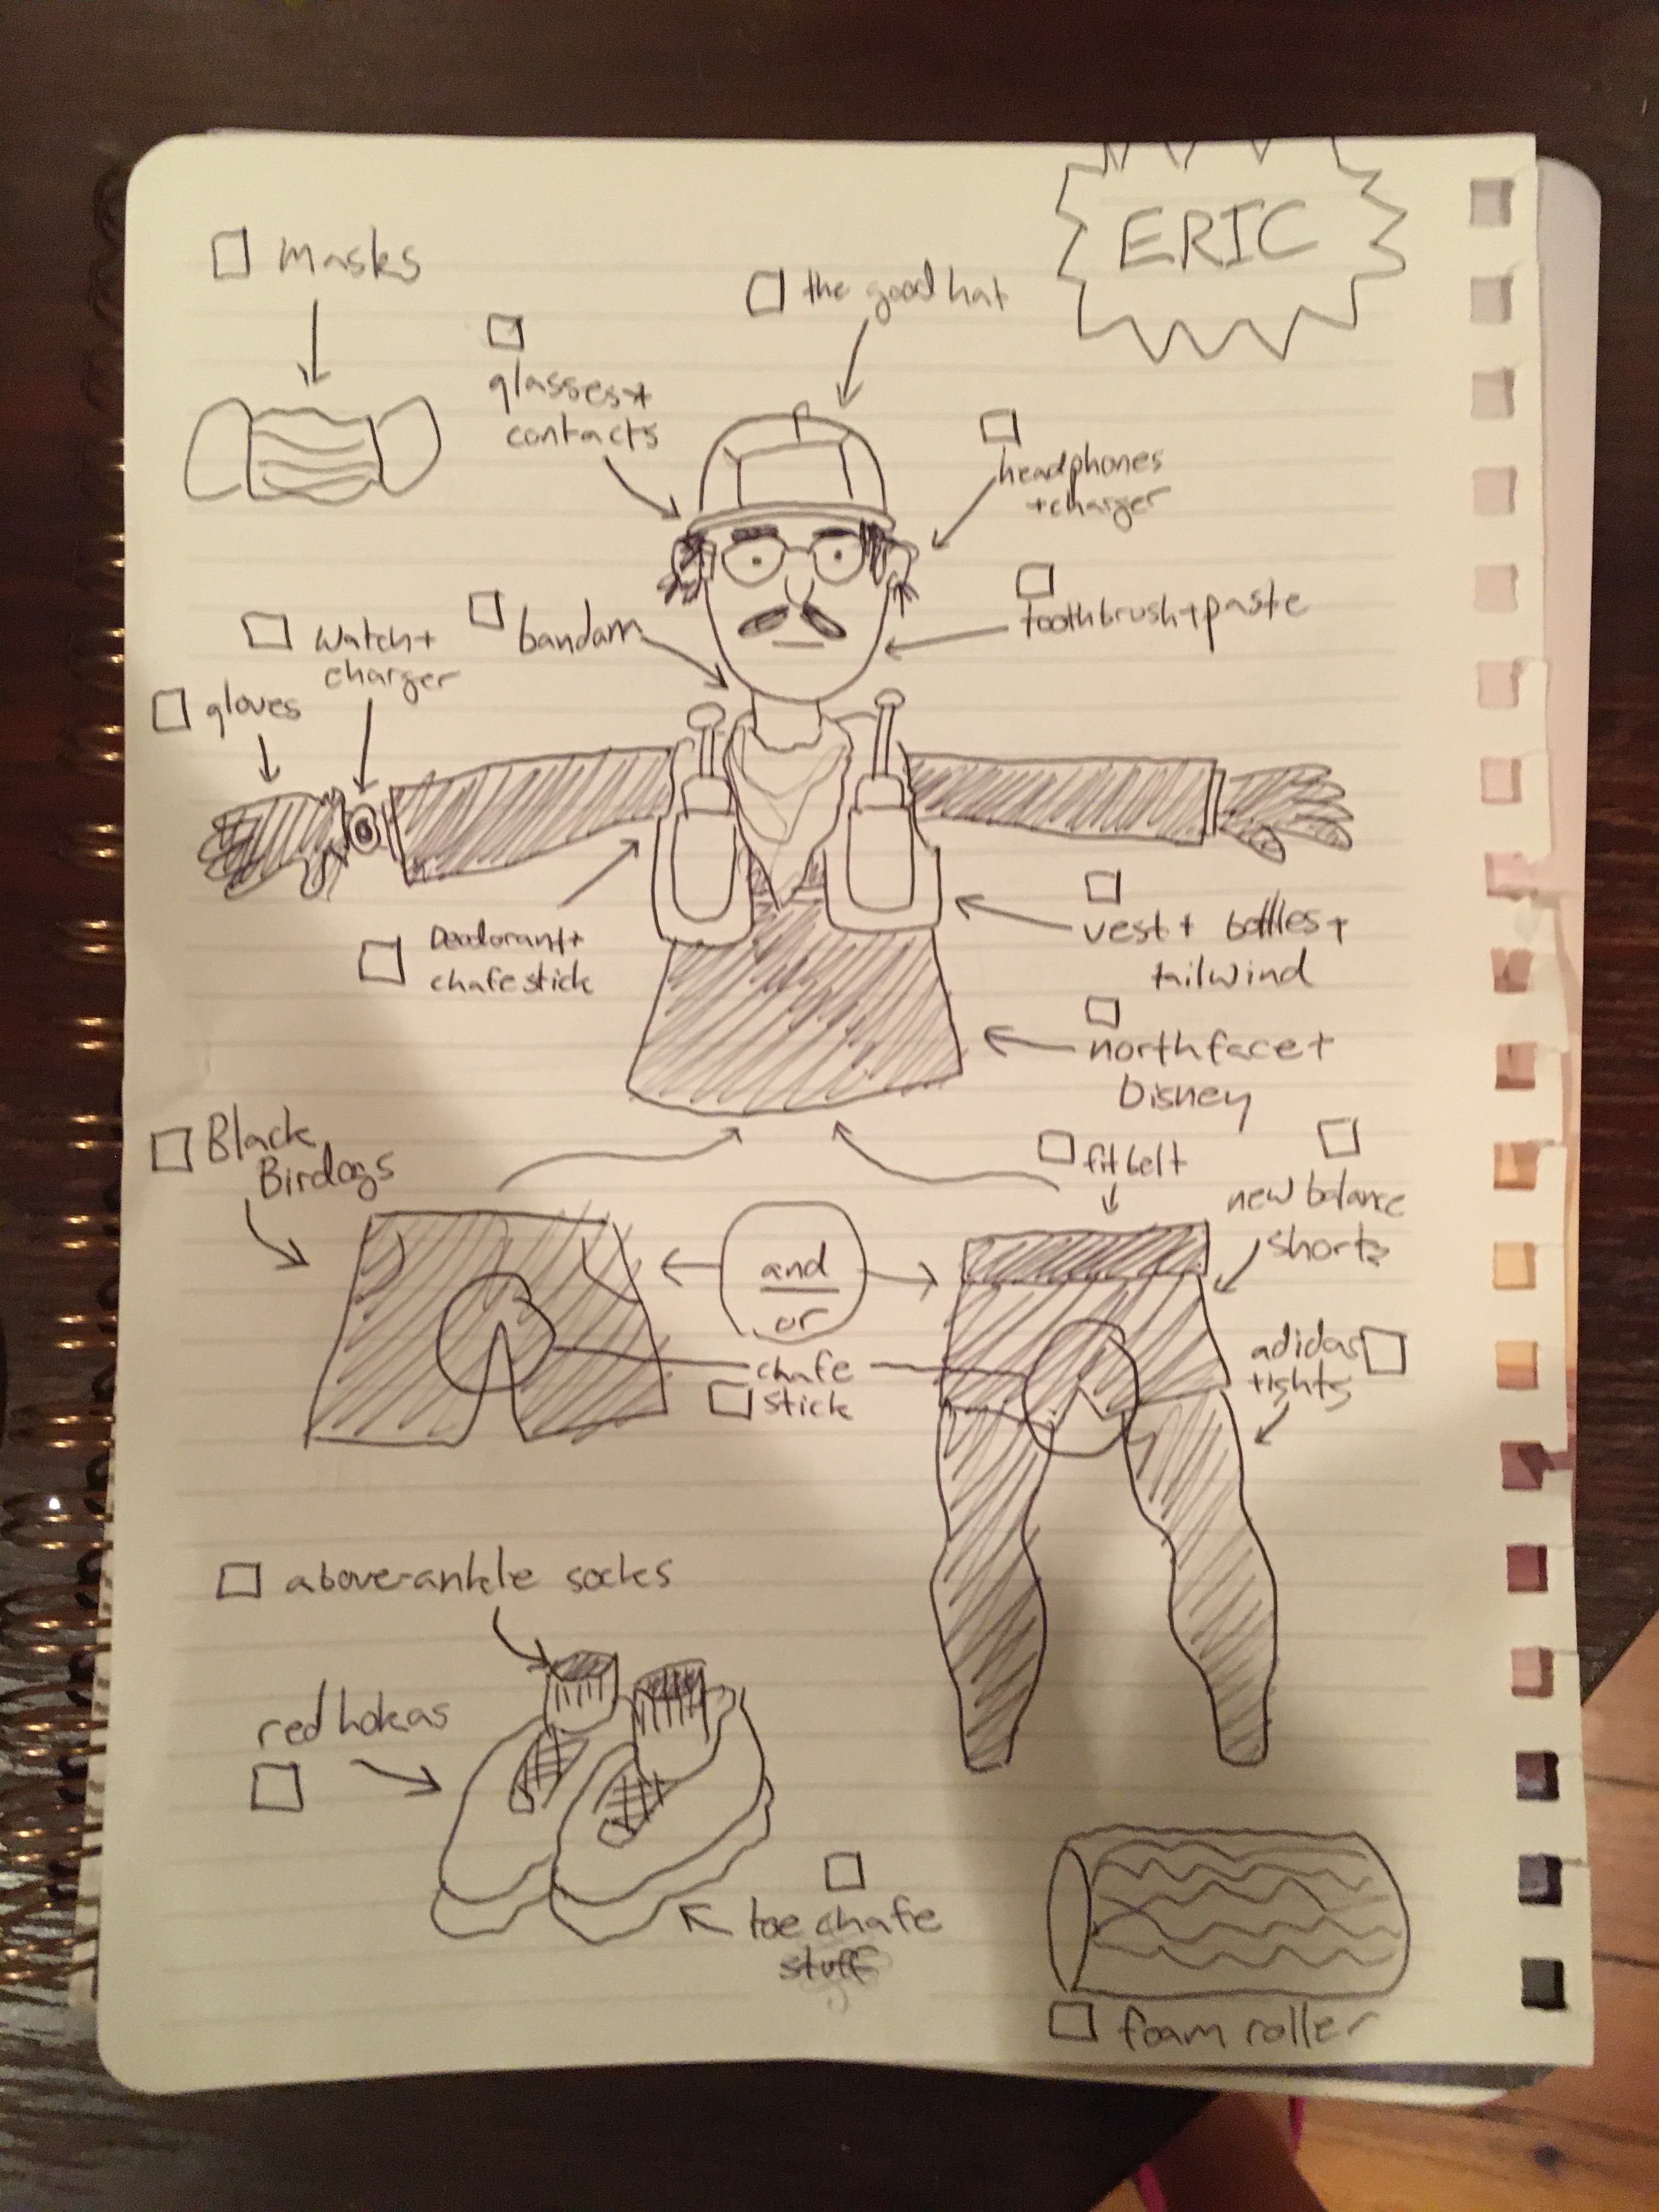 ERIC
masks
the good hat
glasses+
contacts
headphones
+charger
toothbrush+paste
bandana
watch+
charger
gloves
Deodorant+
chafestick
vest+ bottles+
tailwind
northface+
Disney
Black
Birdogs
fitbelt
new balance
shorts
and
or
chafe
stick
adidas
tights
above-ankle socks
red hokas
toe chafe
stuff
foam roller